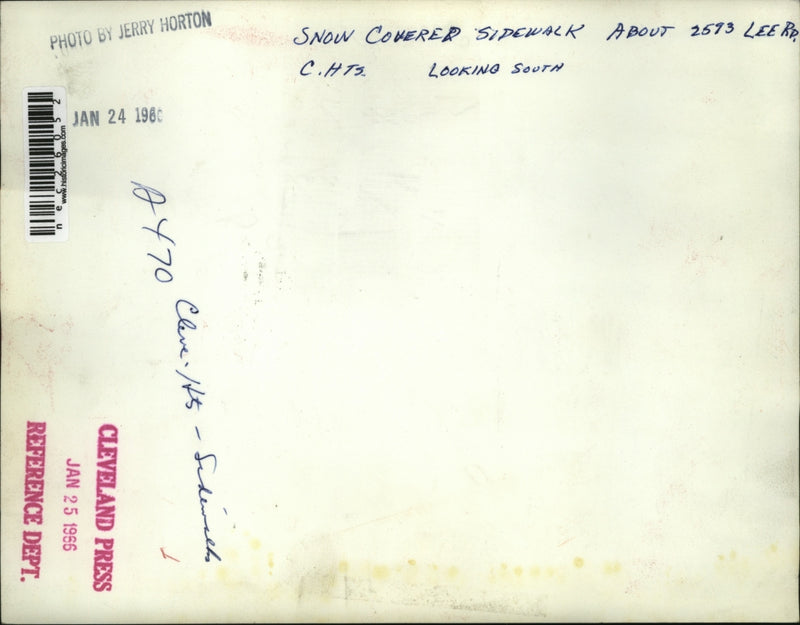 PHOTO BY JERRY HORTON
SNOW COVERED SIDEWALK ABOUT 2593 LEE RD.
C. HTS. LOOKING SOUTH
JAN 24 1966
nec26052
www.historicimages.com
A470 Cleve. Hts - Sidewalks
CLEVELAND PRESS
JAN 25 1966
REFERENCE DEPT.